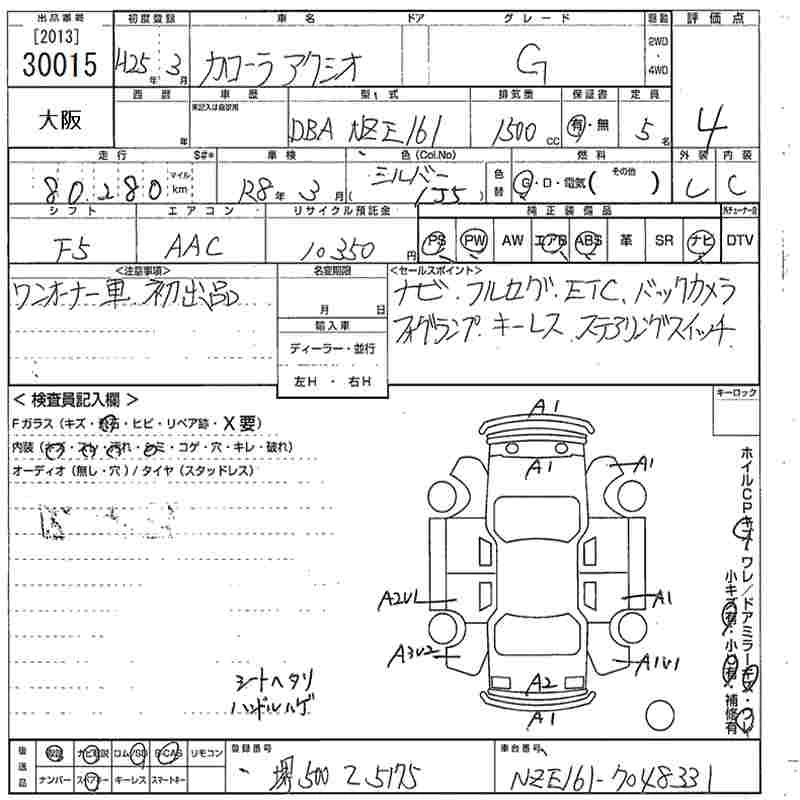 出品番号 初度登録 車名 ドア グレード 駆動 評価点
[2013]
30015 H25年3月 カローラアクシオ G 2WD・4WD 4
大阪 西暦 年 車歴 未記入は自家用 型式 DBA NZE161 排気量 1500CC 保証書 有・無 定員 5名
走行 S#* 車検 色(Col.No) 色替 燃料 外装 内装
80,280 マイル km R8年3月 シルバー (1J5) G・D・電気( その他 ) C C
シフト エアコン リサイクル預託金 純正装備品
F5 AAC 10350円 PS PW AW エアB ABS 革 SR ナビ DTV
<注意事項> 名変期限 <セールスポイント>
ワンオーナー車 初出品 月 日 ナビ.フルセグ.ETC、バックカメラ
輸入車 フォグランプ、キーレス ステアリングスイッチ
ディーラー・並行
左H・右H
< 検査員記入欄 > キーロック
Fガラス(キズ・飛石・ヒビ・リペア跡・X要)
内装(キズ・スレ・汚れ・シミ・コゲ・穴・キレ・破れ)
オーディオ(無し・穴)/タイヤ(スタッドレス)
A1
A1 A1
A2U1 A1
A3U2 A1U1
A2
A1
シートヘタリ
ハンドルハゲ
ホイルCPキズ・ワレ/ドアミラーキズ・ワレ
小キズ有・小凹有・補修有
後送品 ナビ取説 ロム/SD B-CAS リモコン 登録番号 車台番号
ナンバー スペアキー キーレス スマートキー 堺500 そ5175 NZE161-7048331